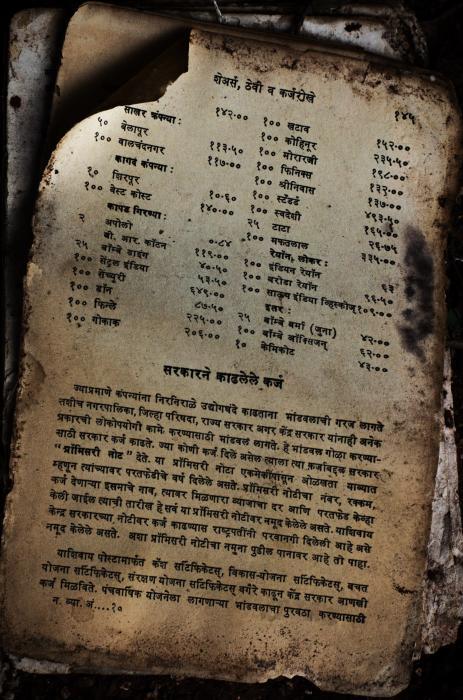 शेअर्स, ठेवी व कर्जरोखे १४५
साखर कंपन्या :
५० बेलापूर १४२-००
१०० वालचंदनगर ११३-५०
कागद कंपन्या : ११७-००
१० शिरपूर
१०० वेस्ट कोस्ट १०-६०
कापड गिरण्या : १४०-००
२ अपोलो
बी. आर. कॉटन ०-८४
२५ बॉम्बे डाइंग ११९-००
१०० सेंट्रल इंडिया ४०-५०
१०० सेंच्युरी ५३-५०
१०० डॉन ६४९-००
१०० फिन्ले ८७-५०
१०० गोकाक २२५-००
२०६-००
१०० खटाव
१०० कोहिनूर १५२-००
१०० मोरारजी २३५-५०
१०० फिनिक्स १९८-००
१०० श्रीनिवास १३२-००
१०० स्टँडर्ड १३७-००
१०० स्वदेशी ४९३-५०
२५ टाटा १६५-००
१०० मफतलाल २६-७५
रेयॉन, लोकर : ३३५-००
१०० इंडियन रेयॉन
१०० बरोडा रेयॉन ६३
१०० साऊथ इंडिया व्हिस्कोज् ९६-५०
इतर : १०९-००
२५ बॉम्बे बर्मा (जुना)
१०० बॉम्बे ऑक्सिजन् ४२-००
१० केमिकोट ६२-००
४३-००
सरकारने काढलेले कर्ज
ज्याप्रमाणे कंपन्यांना निरनिराळे उद्योगधंदे काढताना भांडवलाची गरज लागते
तशीच नगरपालिका, जिल्हा परिषदा, राज्य सरकार अगर केंद्र सरकार यांनाही अनेक
प्रकारची लोकोपयोगी कामे करण्यासाठी भांडवल लागते. हे भांडवल गोळा करण्या-
साठी सरकार कर्ज काढते. ज्या कोणी कर्ज दिले असेल त्याला त्या कर्जाबद्दल सरकार
"प्रॉमिसरी नोट" देते. या प्रॉमिसरी नोटा एकमेकींपासून ओळखता याव्यात
म्हणून त्यांच्यावर परतफेडीचे वर्ष दिलेले असते. प्रॉमिसरी नोटीचा नंबर, रक्कम,
कर्ज देणाऱ्या इसमाचे नाव, त्यावर मिळणारा व्याजाचा दर आणि परतफेड केव्हा
केली जाईल त्याची तारीख हे सर्व या प्रॉमिसरी नोटीवर नमूद केलेले असते. याशिवाय
केंद्र सरकारच्या, नोटीवर कर्ज काढण्यास राष्ट्रपतींनी परवानगी दिलेली आहे असे
नमूद केलेले असते. अशा प्रॉमिसरी नोटीचा नमुना पुढील पानावर आहे तो पाहा.
याशिवाय पोस्टामार्फत कॅश सर्टिफिकेट्स्, विकास-योजना सर्टिफिकेट्स्, बचत
योजना सर्टिफिकेट्स्, संरक्षण योजना सर्टिफिकेट्स् वगैरे काढून केंद्र सरकार आणखी
कर्ज मिळविते. पंचवार्षिक योजनेला लागणाऱ्या भांडवलाचा पुरवठा करण्यासाठी
न. व्या. अं....१०